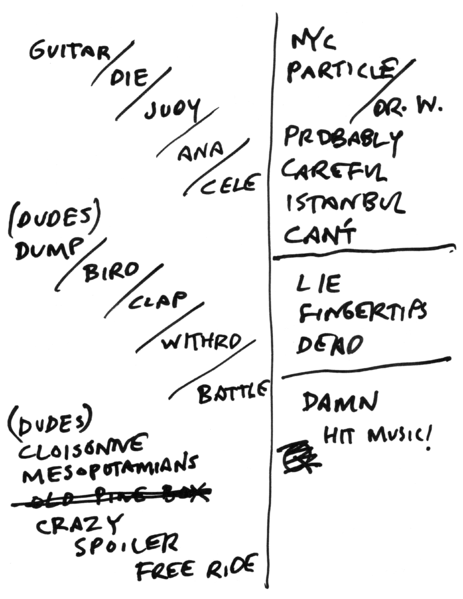 GUITAR/
DIE/
JUDY/
ANA/
CELE
(DUDES)
DUMP/
BIRD/
CLAP/
WITHRD/
BATTLE
(DUDES)
CLOISONNE
MESOPOTAMIANS
OLD PINE BOX
CRAZY
SPOILER
FREE RIDE
NYC
PARTICLE/
DR. W.
PROBABLY
CAREFUL
ISTANBUL
CAN'T
LIE
FINGERTIPS
DEAD
DAMN
HIT MUSIC!